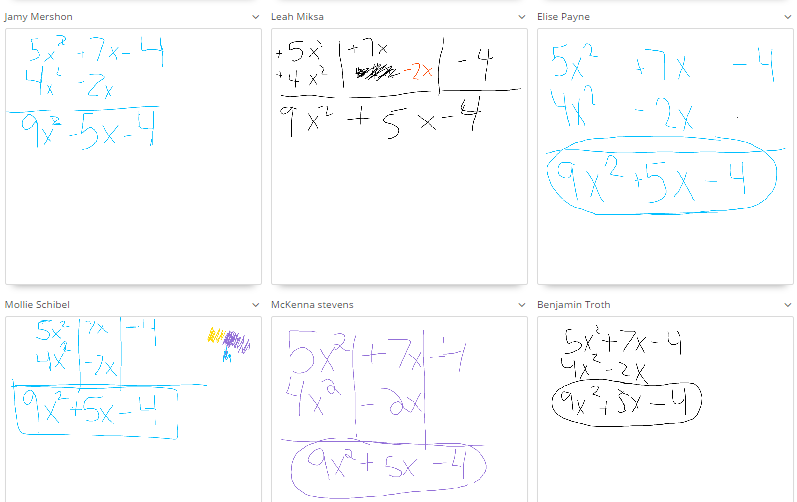 Jamy Mershon
5x² +7x - 4
4x² -2x
9x² -5x - 4
Leah Miksa
+5x² +7x - 4
+4x² -2x
9x² + 5x - 4
Elise Payne
5x² +7x - 4
4x² -2x
9x² +5x - 4
Mollie Schibel
5x² 7x -4
4x² -2x
9x² +5x - 4
McKenna stevens
5x² +7x -4
4x² -2x
9x² + 5x - 4
Benjamin Troth
5x² +7x - 4
4x² - 2x
9x² + 5x - 4